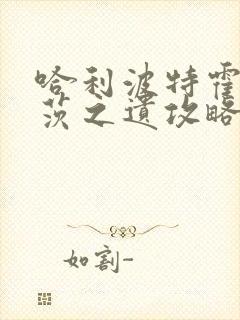 哈利波特霍
茨之遗攻略
如割-